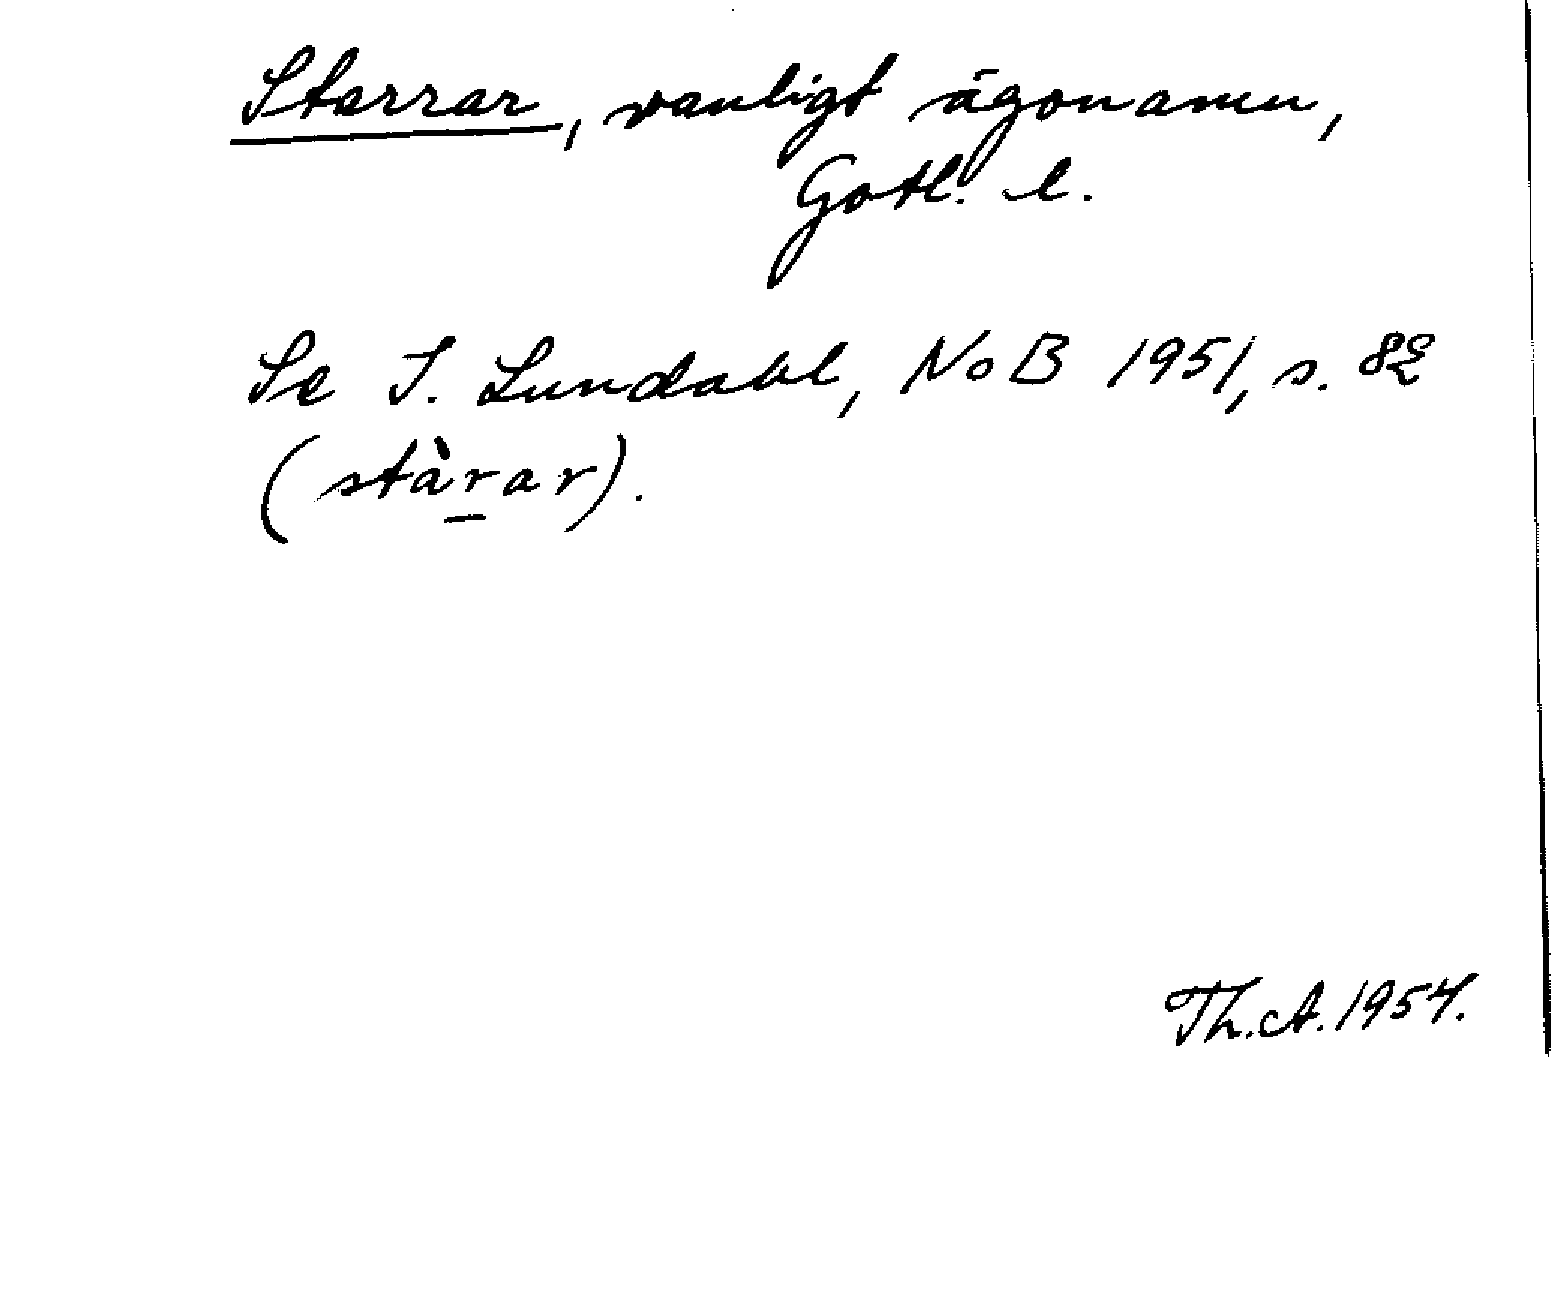 Starrar, vanligt ägonamn,
Gotl. l.
Se I. Lundahl, NoB 1951, s. 82
(stàr̲ar).
Th.A. 1954.